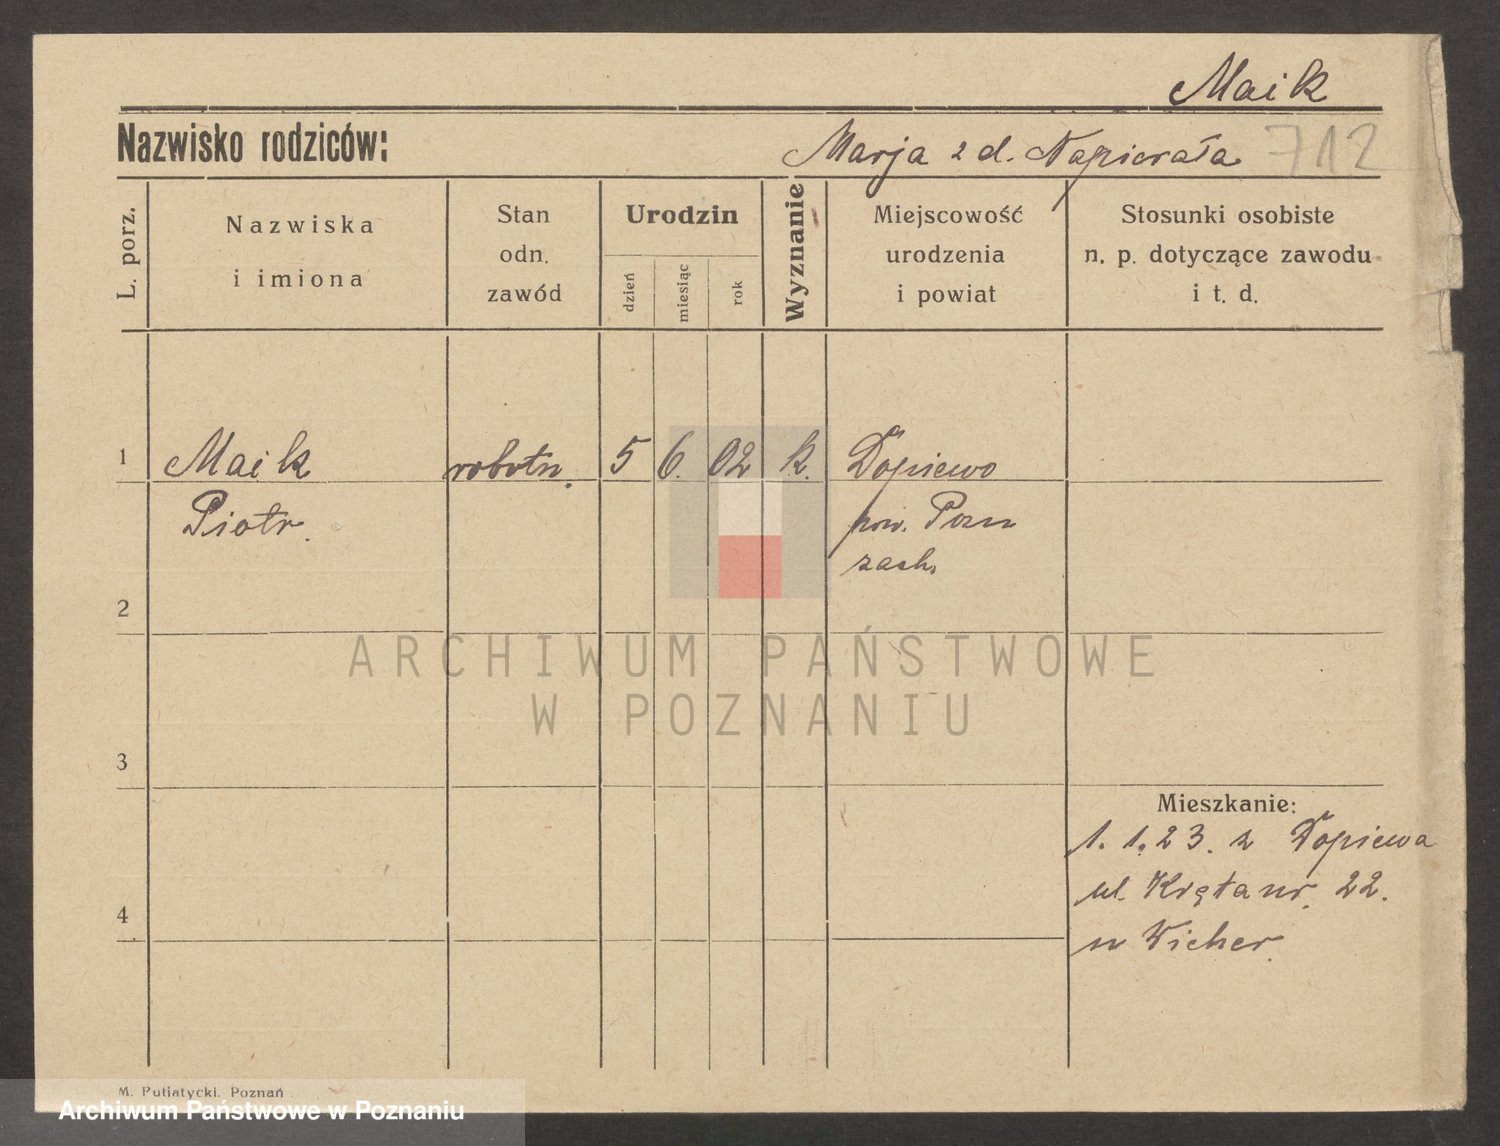 Maik
Nazwisko rodziców:
Marja z d. Napierała
712
L. porz.
Nazwiska
i imiona
Stan
odn.
zawód
Urodzin
dzień
miesiąc
rok
Wyznanie
Miejscowość
urodzenia
i powiat
Stosunki osobiste
n. p. dotyczące zawodu
i t. d.
1
Maik
robotn.
5
6.
02
k.
Dopiewo
Piotr.
pow. Pozn
zach.
2
ARCHIWUM PAŃSTWOWE
W POZNANIU
3
Mieszkanie:
1. 1. 23. z Dopiewa
ul. Kręta nr. 22.
4
u Wicher.
M. Putiatycki, Poznań
Archiwum Państwowe w Poznaniu